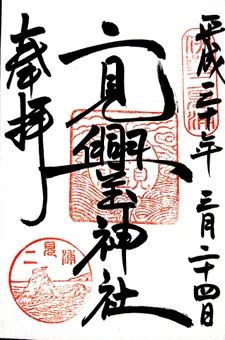 平成三十年三月二十四日
二見興玉神社
奉拝
二見浦